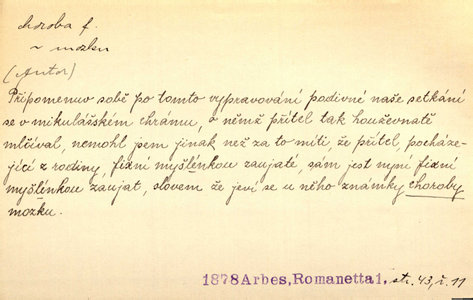 choroba f.
~ mozku
(Autor)
Připomenuv sobě po tomto vypravování podivné naše setkání
se v mikulášském chrámu, o němž přítel tak houževnatě
mlčíval, nemohl jsem jinak než za to míti, že přítel pocháze-
jící z rodiny, fixní myšlénkou zaujaté, sám jest nyní fixní
myšlénkou zaujat, slovem že jeví se u něho známky choroby
mozku.
1878 Arbes, Romanetta 1. str. 43, ř. 11